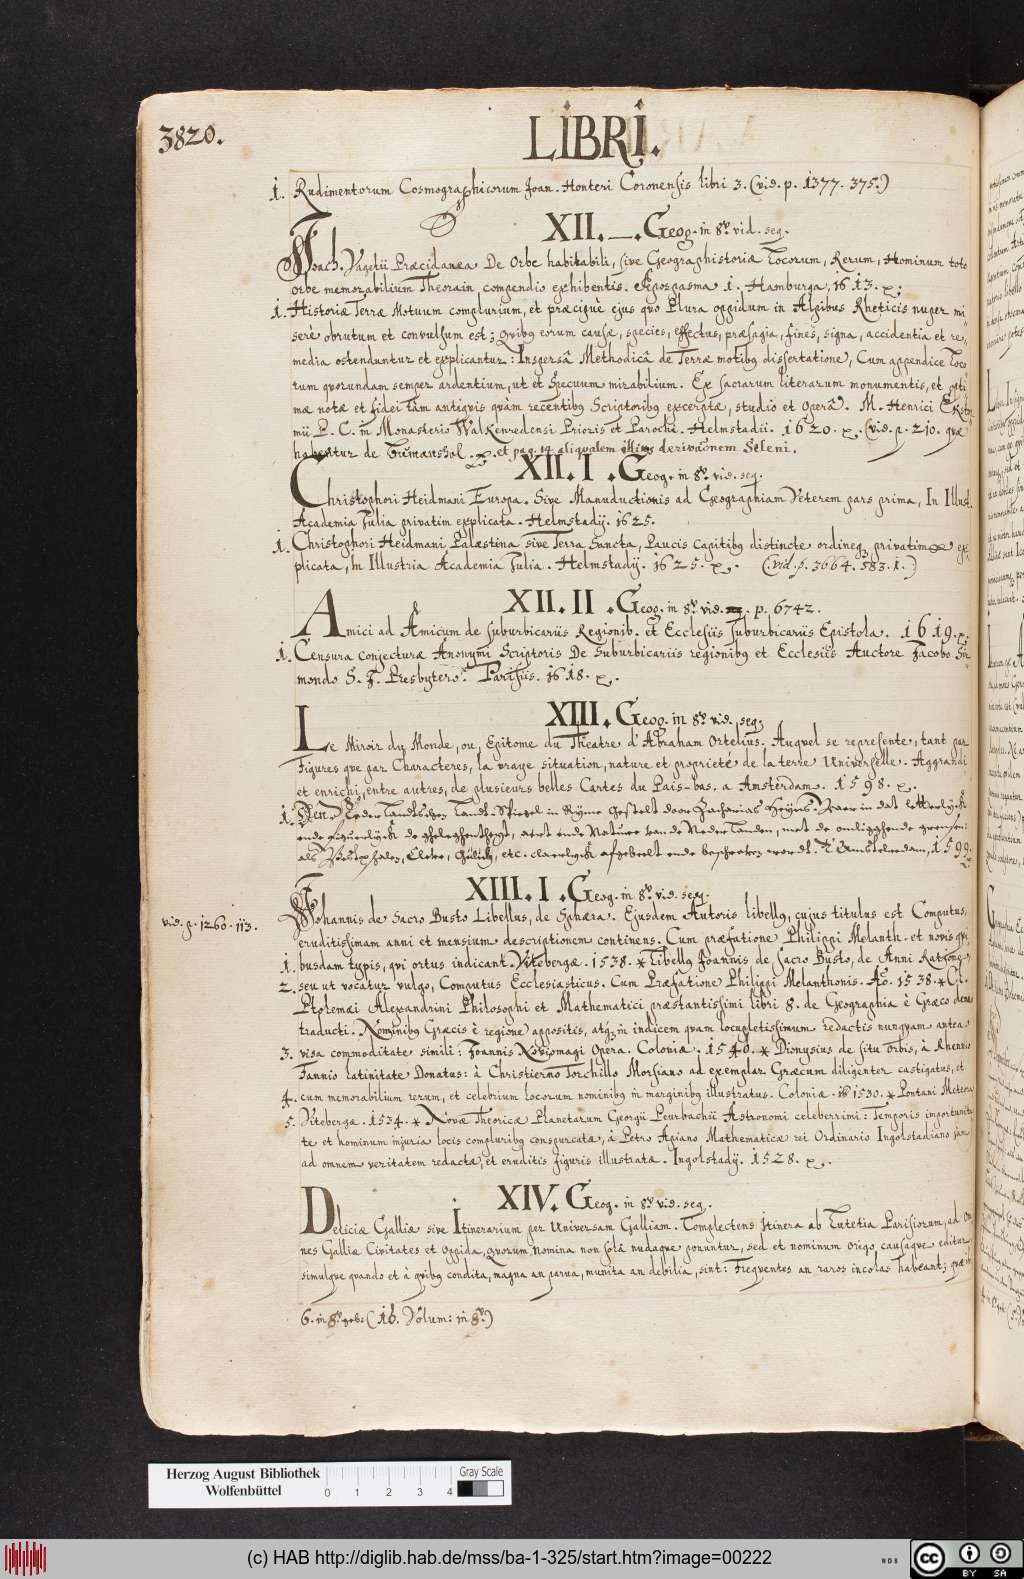 3820.
LIBRI.
1. Rudimentorum Cosmographicorum Joan. Honteri Coronensis libri 3. (vid. p. 1377. 375.)
XII. —. Geog. in 8vo vid. seg.
Joach. Vagetii Præcidanea De Orbe habitabili, sive Geographistoriæ Locorum, Rerum, Hominum toto
orbe memorabilium Theorain compendio exhibentis. Apospasma 1. Hamburga, 1613.
1. Historiæ Terræ Motuum complurium, et præcipuè ejus quo Plura oppidum in Alpibus Rheticis nuper mi-
serè obrutum et convulsum est; quibq eorum causæ, species, effectus, præsagia, fines, signa, accidentia et re-
media ostenduntur et explicantur: Inspersâ Methodicâ de Terræ motibq dissertatione, Cum appendice Loco
rum quorundam semper ardentium, ut et specuum mirabilium. Ex sacrarum literarum monumentis, et opti
mæ notæ et fidei tàm antiquis quàm recentibq Scriptoribq excerptæ, studio et Operâ. M. Henrici Eksto
mii P. C. in Monasterio Walkenredensi Prioris et Parochi. Helmstadii. 1620. (vid. p. 210. quæ
habentur de et pag. 14 aliqualem Seleni.
XII. I. Geog. in 8vo vid. seg.
Christophori Heidmani Europa. Sive Manuductionis ad Geographiam Veterem pars prima, In Illust.
Academia Julia privatim explicata. Helmstadij. 1625.
1. Christophori Heidmani Palæstina sive Terra Sancta, Paucis capitibq distincte ordineq privatim ex-
plicata, In Illustria Academia Julia. Helmstadij. 1625. (vid. p. 3664. 583. 1.)
XII. II. Geog. in 8vo vid. p. 6742.
Amici ad Amicum de suburbicariis Regionib. et Ecclesiis suburbicariis Epistola. 1619.
1. Censura conjecturæ Anonymi Scriptoris De Suburbicariis regionibq et Ecclesiis Auctore Jacobo Sir-
mondo S. J. Presbytero. Parisiis. 1618.
XIII. Geog. in 8vo vid. seg.
Le Miroir du Monde, ou, Epitome du Theatre d'Abraham Ortelius. Auquel se represente, tant par
Figures que par Characteres, la vraye situation, nature et proprieté de la terre Universelle. Aggrandi
et enrichi, entre autres, de plusieurs belles Cartes du Pais-bas. a Amsterdam. 1598.
1. Den Nederlandtschen Landt-Spiegel in Ryme gestelt door Zacharias Heyns. Waer in dat letterlijck
ende figuerlijck de gheleghentheyt, aert ende Natuere van de Nederlanden, met de omligghende grensen:
als Westphalen, Cleve, Gülich, etc. claerlijck afgebeelt ende beschreven wordt. t'Amstelredam, 1599.
XIII. I. Geog. in 8vo vid. seg.
vid. p. 1260. 113.
Johannis de Sacro Busto Libellus, de Sphæra. Ejusdem Autoris libellq, cujus titulus est Computus,
eruditissimam anni et mensium descriptionem continens. Cum præfatione Philippi Melanth. et novis qui
1. busdam typis, qui ortus indicant. Vitebergæ. 1538. * Libellq Joannis de Sacro Busto, de Anni Ratione,
2. seu ut vocatur vulgo, Computus Ecclesiasticus. Cum Præfatione Philippi Melanthonis. Ao. 1538. * Cl.
Ptolemæi Alexandrini Philosophi et Mathematici præstantissimi libri 8. de Geographia è Græco denuo
traducti. Nominibq Græcis è regione appositis, atq in indicem quam locupletissimum redactis nunquam antea
3. visa commoditate simili: Joannis Noviomagi Opera. Coloniæ. 1540. * Dionysius de situ orbis, à Rhennio
Fannio latinitate Donatus: à Christierno Torchillo Morsiano ad exemplar Græcum diligenter castigatus, et
4. cum memorabilium rerum, et celebrium locorum nominibq in marginibq illustratus. Coloniæ. 1530. * Pontani Meteora
5. Vitebergæ. 1534. * Novæ Theoricæ Planetarum Georgii Peurbachii Astronomi celeberrimi: Temporis importunita
te et hominum injuria locis compluribq conspurcatæ, à Petro Apiano Mathematicæ rei Ordinario Ingolstadiano jam
ad omnem veritatem redactæ, et eruditis figuris illustratæ. Ingolstadij. 1528.
XIV. Geog. in 8vo vid. seg.
Deliciæ Galliæ sive Itinerarium per Universam Galliam. Complectens Itinera ab Lutetia Parisiorum, ad om
nes Galliæ Civitates et Oppida, quorum nomina non solâ nudaque ponuntur, sed et nominum origo, causaque editur,
simulque quando et à quibq condita, magna an parva, munita an debilia, sint: Frequentes an raros incolas habeant; quæ ib
6. in 8vo geb: (16. Volum: in 8vo)
Herzog August Bibliothek
Wolfenbüttel
0 1 2 3 4
Gray Scale
(c) HAB http://diglib.hab.de/mss/ba-1-325/start.htm?image=00222
WDB
cc BY SA